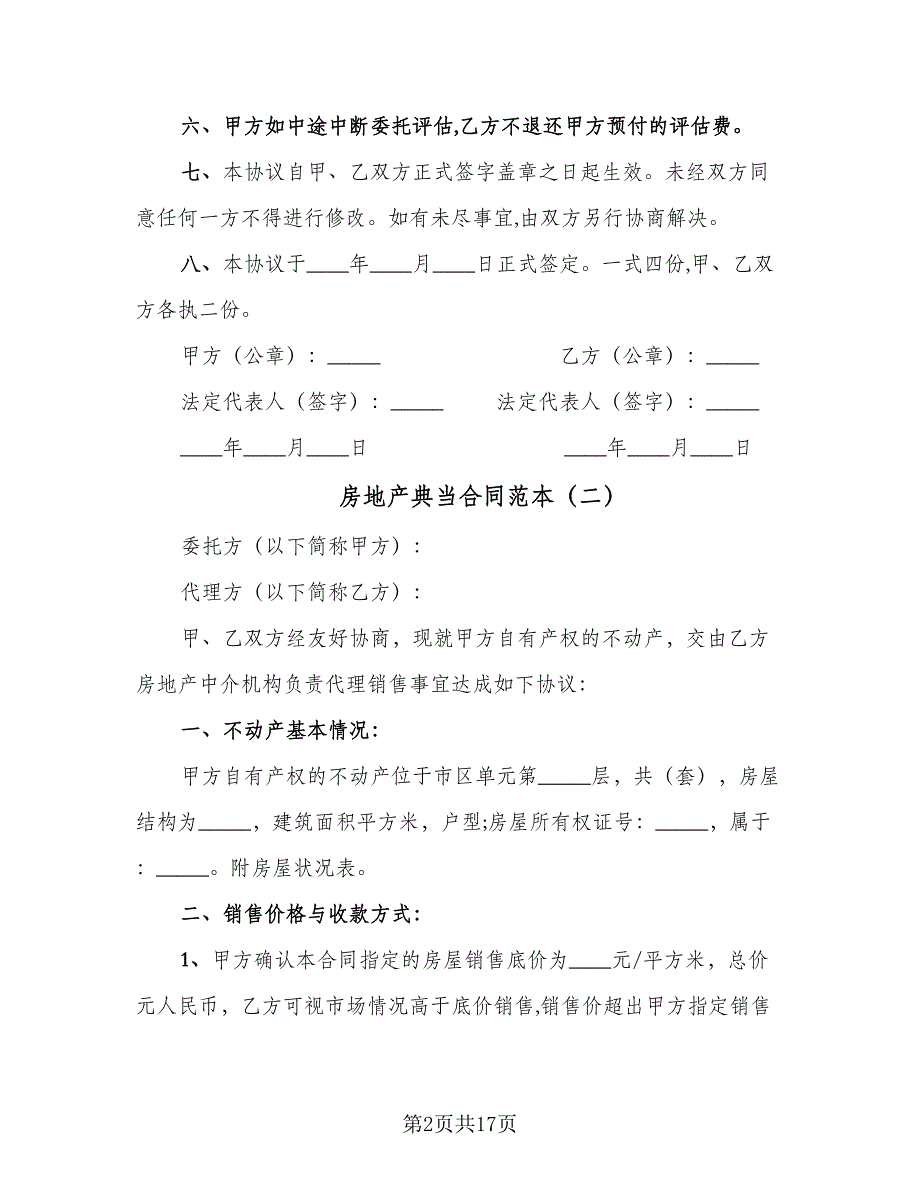 六、甲方如中途中断委托评估,乙方不退还甲方预付的评估费。
七、本协议自甲、乙双方正式签字盖章之日起生效。未经双方同
意任何一方不得进行修改。如有未尽事宜,由双方另行协商解决。
八、本协议于____年____月____日正式签定。一式四份,甲、乙双
方各执二份。
甲方（公章）：_____ 乙方（公章）：_____
法定代表人（签字）：_____ 法定代表人（签字）：_____
____年____月____日 ____年____月____日
房地产典当合同范本（二）
委托方（以下简称甲方）：
代理方（以下简称乙方）：
甲、乙双方经友好协商，现就甲方自有产权的不动产，交由乙方
房地产中介机构负责代理销售事宜达成如下协议：
一、不动产基本情况：
甲方自有产权的不动产位于市区单元第_____层，共（套），房屋
结构为_____，建筑面积平方米，户型;房屋所有权证号：_____，属于
：_____。附房屋状况表。
二、销售价格与收款方式：
1、甲方确认本合同指定的房屋销售底价为____元/平方米，总价
元人民币，乙方可视市场情况高于底价销售,销售价超出甲方指定销售
第2页共17页